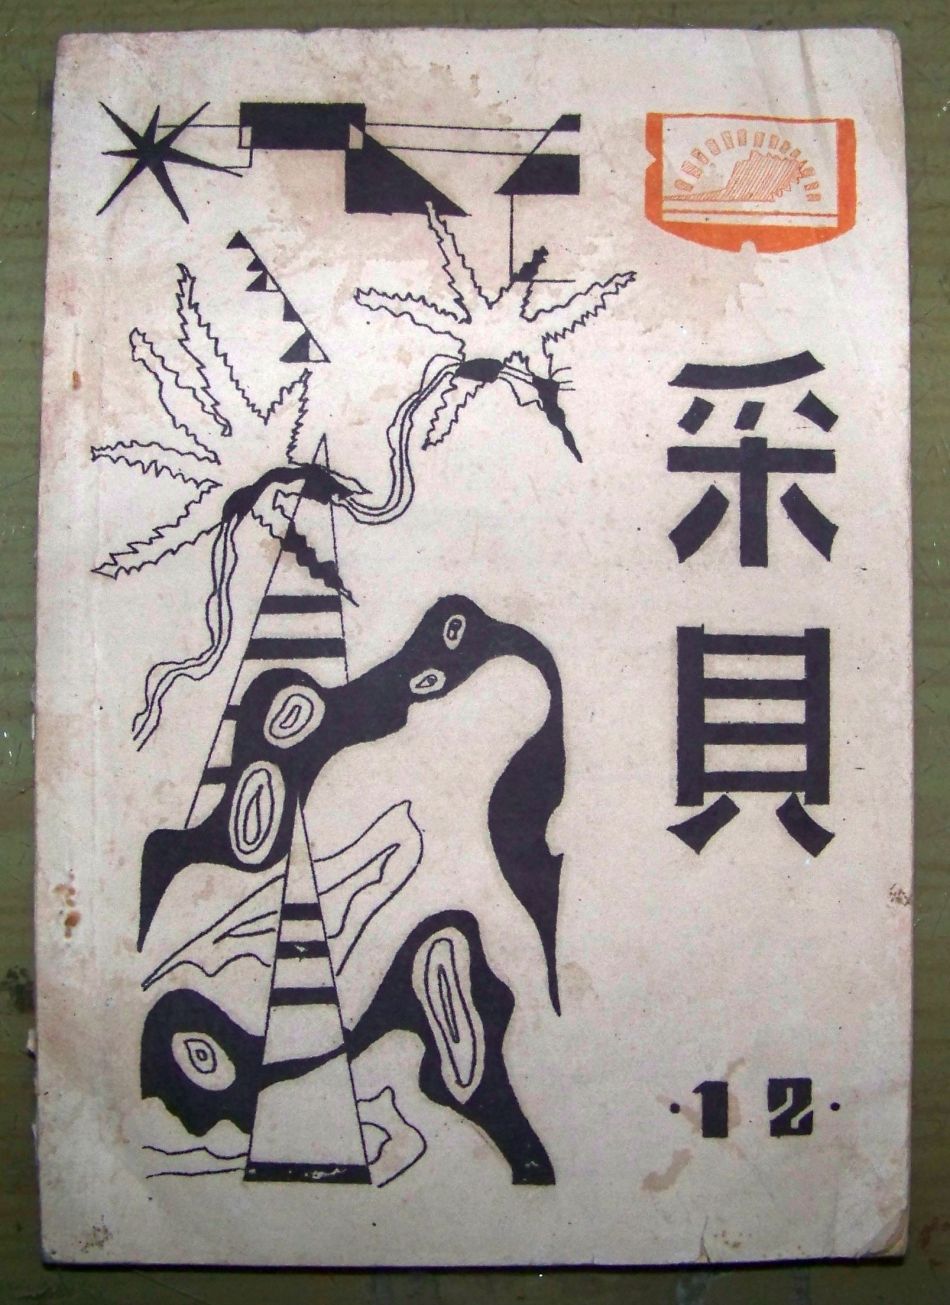 采貝
·12·